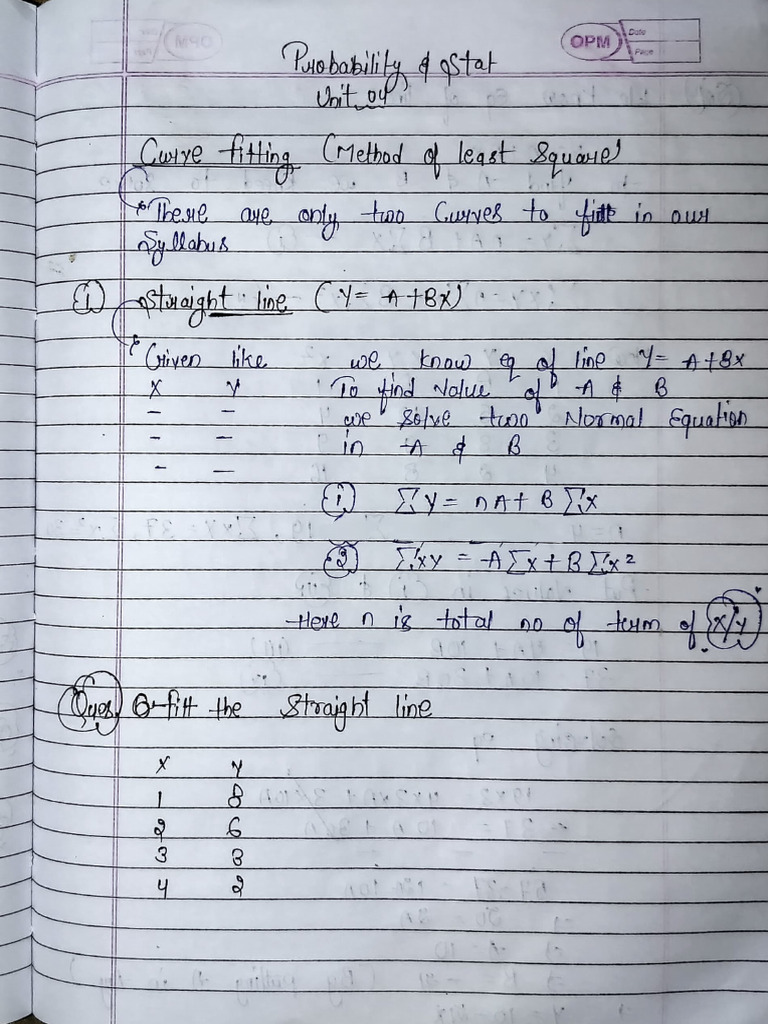 OPM
Date
Page
Probability & Stat
Unit 04
Curve fitting (Method of least Square)
* There are only two Curves to fitt in our
Syllabus
① Straight line (Y = A+BX)
* Given like we know eq of line Y = A+BX
X Y To find Value of A & B
– – we Solve two Normal Equation
– – in A & B
– –
① ΣY = nA + BΣX
② ΣXY = AΣX + BΣX²
Here n is total no of term of X/Y
Ques fitt the Straight line
X Y
1 8
2 6
3 3
4 2